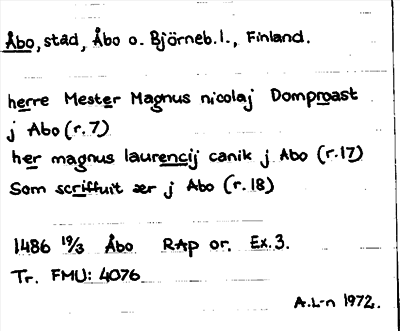 Åbo, stad, Åbo o. Björneb. l., Finland.
herre Mester Magnus nicolaj Domproast
j Abo (r. 7)
her magnus laurencij canik j Abo (r. 17)
Som scriffuit ær j Abo (r. 18)
1486 19/3 Åbo RAp or. Ex. 3.
Tr. FMU: 4076
A.L-n 1972.